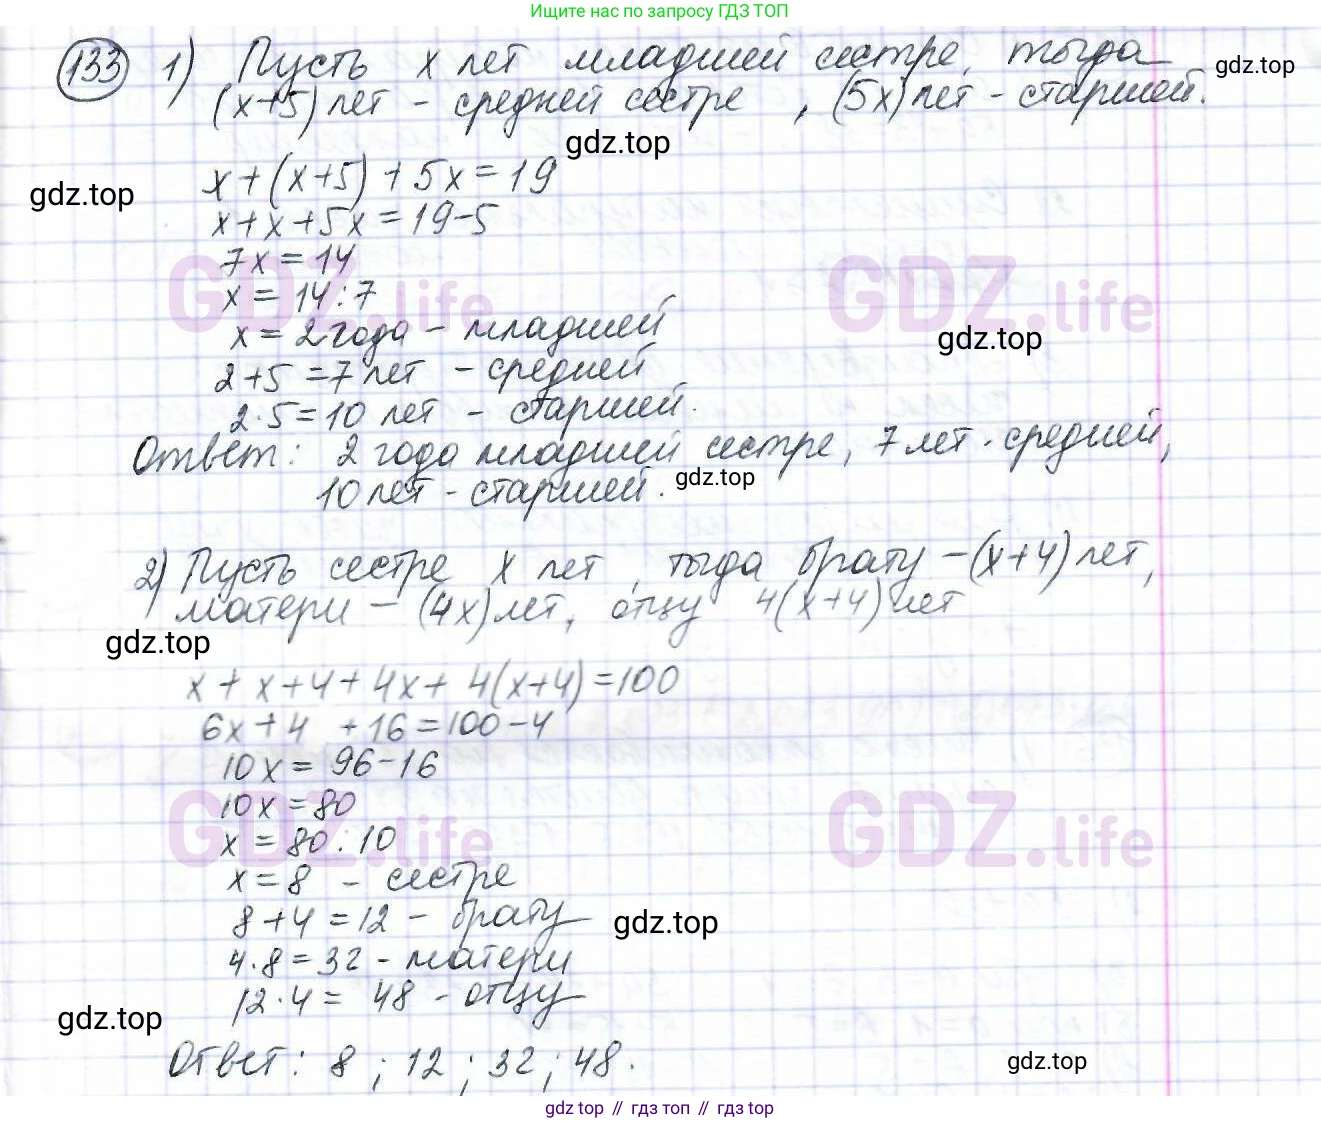 Ищите нас по запросу ГДЗ ТОП
133 1) Пусть x лет младшей сестре, тогда
gdz.top
(x+5) лет - средней сестре, (5x) лет - старшей.
gdz.top
x+(x+5)+5x=19
gdz.top
x+x+5x=19-5
7x=14
GDZ.life GDZ.life
x=14:7
x=2 года - младшей
gdz.top
2+5=7 лет - средней
2·5=10 лет - старшей.
Ответ: 2 года младшей сестре, 7 лет - средней,
10 лет - старшей.
gdz.top
2) Пусть сестре x лет, тогда брату -(x+4) лет,
матери - (4x) лет, отцу 4(x+4) лет
gdz.top
x+x+4+4x+4(x+4)=100
6x+4 +16=100-4
10x=96-16
10x=80
GDZ.life GDZ.life
x=80:10
x=8 - сестре
8+4=12 - брату
gdz.top
4·8=32 - матери
12·4=48 - отцу
gdz.top
Ответ: 8; 12; 32; 48.
gdz.top
gdz top // гдз топ // gdz top